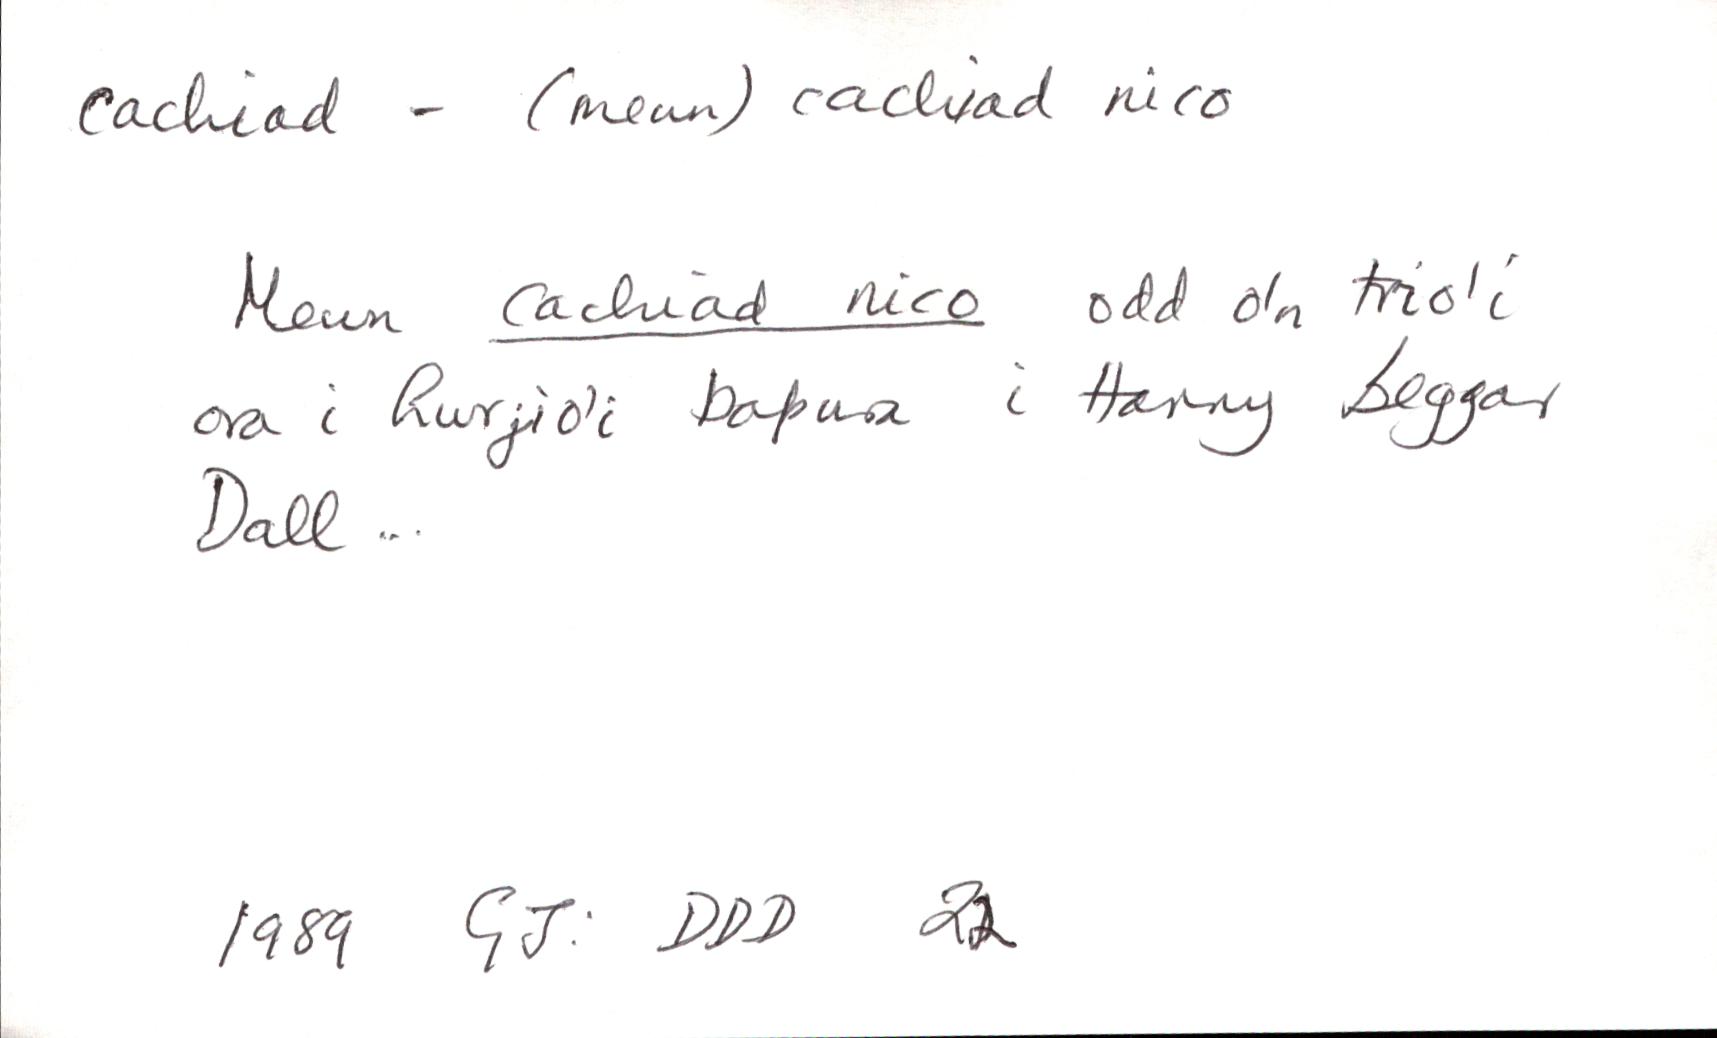 cachiad - (meun) cachiad nico
Meun cachiad nico odd o'n trio'i
ora i hurjio'i bapura i Harry Beggar
Dall ...
1989 GJ: DDD 22